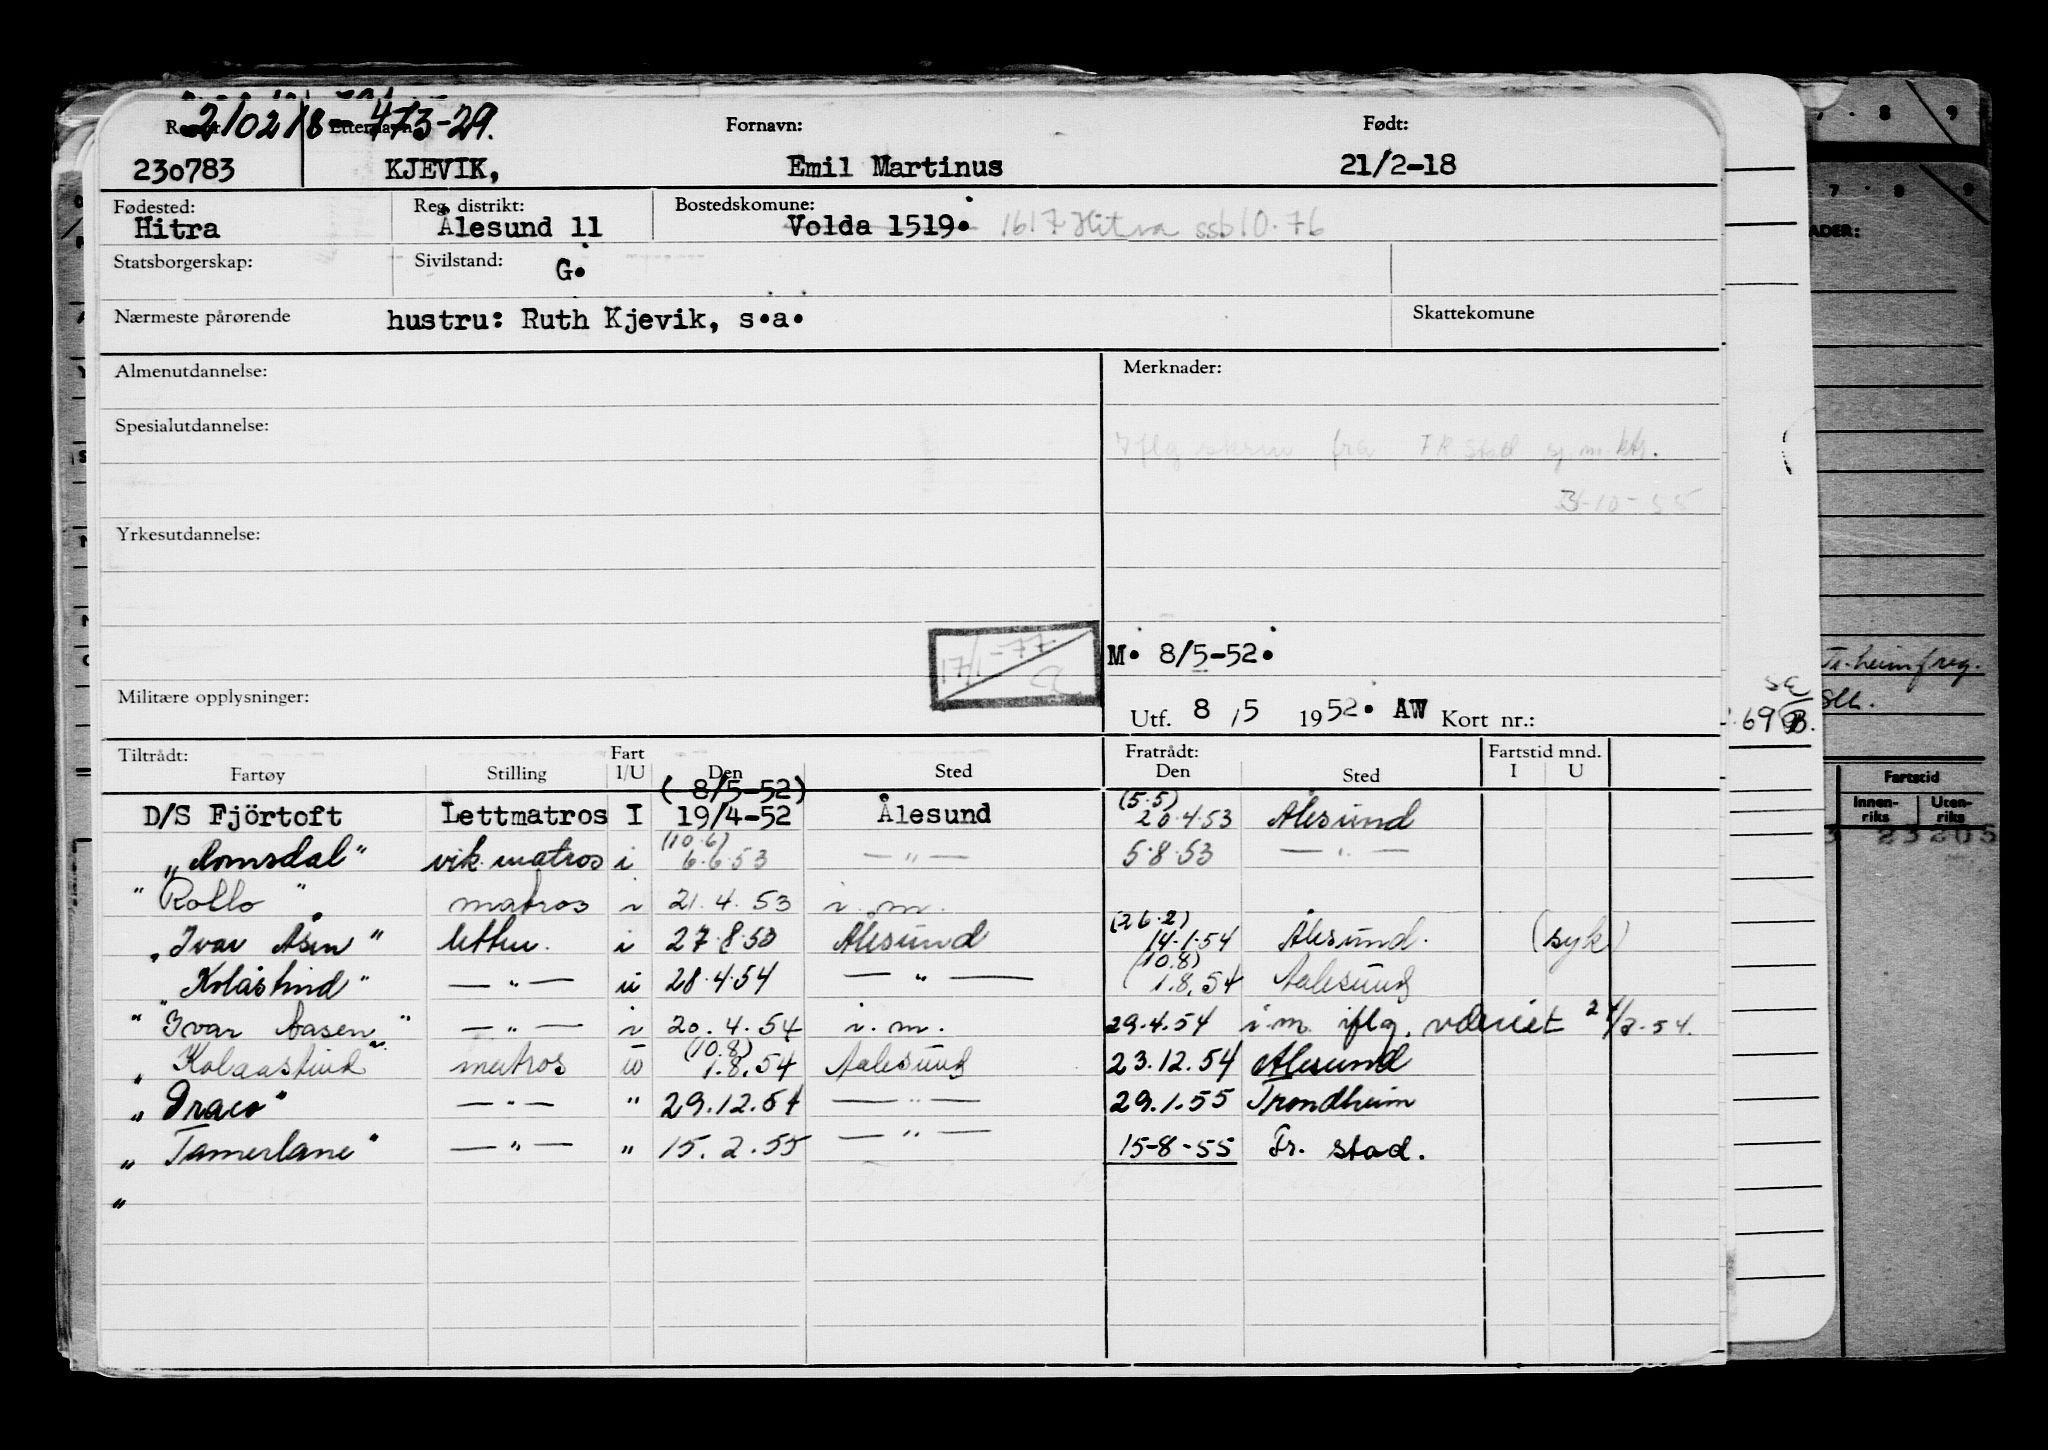 210218-473-29.
Etternavn: Fornavn: Født:
230783 KJEVIK, Emil Martinus 21/2-18
Fødested: Reg. distrikt: Bostedskomune:
Hitra Ålesund 11 Volda 1519. 1617 Hitra ssb 10.76
Statsborgerskap: Sivilstand: G.
Nærmeste pårørende hustru: Ruth Kjevik, s.a. Skattekomune
Almenutdannelse: Merknader:
Spesialutdannelse:
Iflg skriv fra FR.stad sj.m.ktr.
31-10-55
Yrkesutdannelse:
17/1-77
M. 8/5-52.
Militære opplysninger:
Utf. 8/5 1952. AW Kort nr.:
Tiltrådt: Fart Fratrådt: Fartstid mnd.
Fartøy Stilling I/U Den Sted Den Sted I U
(8/5-52) (5.5)
D/S Fjörtoft Lettmatros I 19/4-52 Ålesund 20.4.53 Ålesund
(10.6)
„Romsdal" vik. matros i 6.6.53 — " — 5.8.53 — " —
" Rollo " matros i 21.4.53 i.m.
(26.2)
„ Ivar Åsen " lettm. i 27.8.53 Ålesund 14.1.54 Ålesund. (syk)
(10.8)
„ Kolåstind" — " — u 28.4.54 — " — 1.8.54 Aalesund
" Ivar Aasen " — " — i 20.4.54 i.m. 29.4.54 i.m. iflg.
(10.8)
„ Kolaastind " matros u 1.8.54 Aalesund 23.12.54 Ålesund
„ Draco" — " — " 29.12.54 — " — 29.1.55 Trondheim
„ Tamerlane" — " — " 15.2.55 — " — 15-8-55 Fr. stad.
„
7 . 8 9
ADER:
Tr.heim freg.
69
Fartstid
Innen-riks Uten-riks
23205